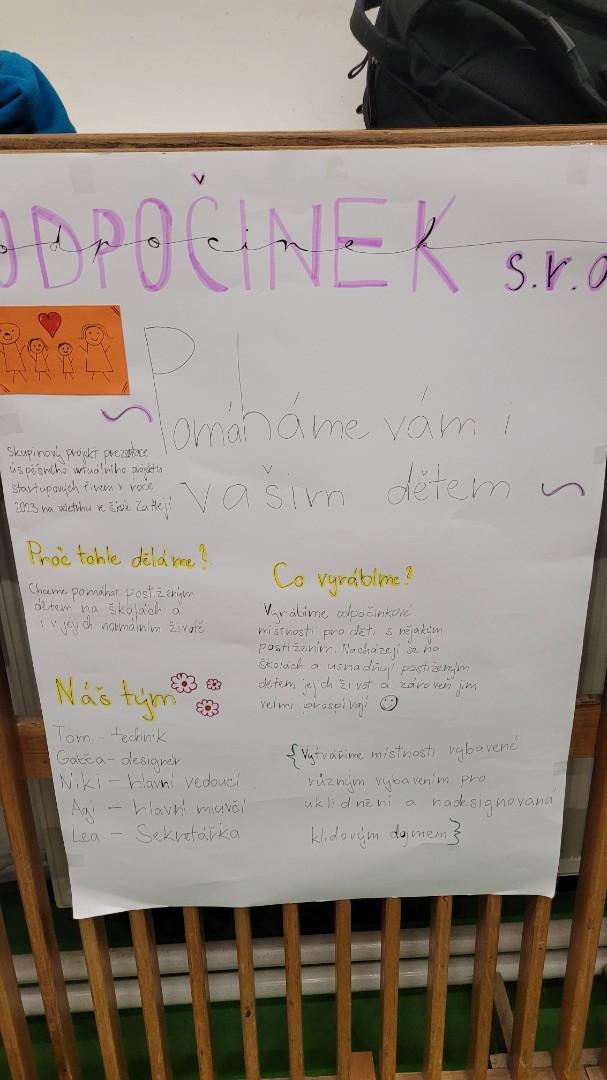 ODPOČINEK
odpočinek
s.r.o
Pomáháme vám i
vašim dětem
Skupinový projekt prezentace
úspěšného virtuálního projektu
startupových firem v roce
2023 na veletrhu ve škole
Proč tohle děláme?
Chceme pomáhat postiženým
dětem na školách a
i v jejich normálním životě
Co vyrábíme?
Vyrábíme odpočinkové
místnosti pro děti s nějakým
postižením. Nacházejí se na
školách a usnadňují postiženým
dětem jejich život a zároveň jim
velmi prospívají
Náš tým
Tom - technik
Gabča - designér
Niki - hlavní vedoucí
Agi - hlavní mluvčí
Lea - Sekretářka
{Vytváříme místnosti vybavené
různým vybavením pro
uklidnění a nadesignovaná
klidovým dojmem}